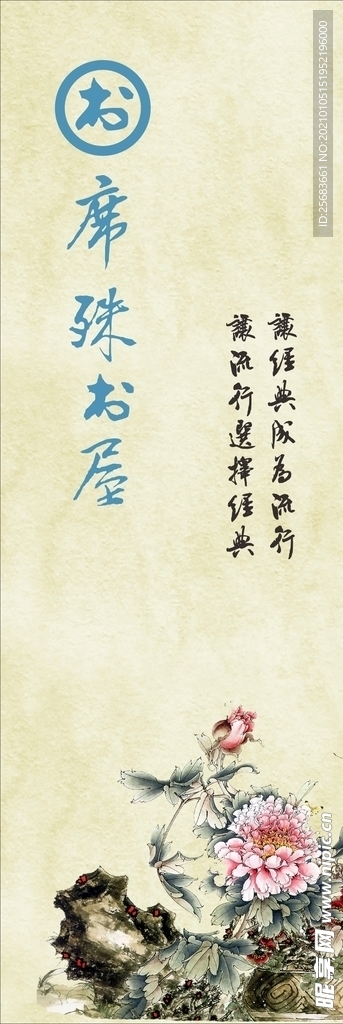 书
席殊书屋
讓經典成為流行
讓流行選擇經典
ID:25683661 NO:20210105151952196000
昵享网 www.nipic.cn